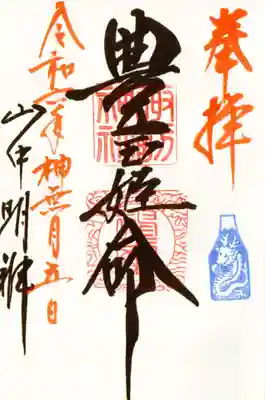 奉拝
豊玉姫命
令和二年神無月五日
山中明